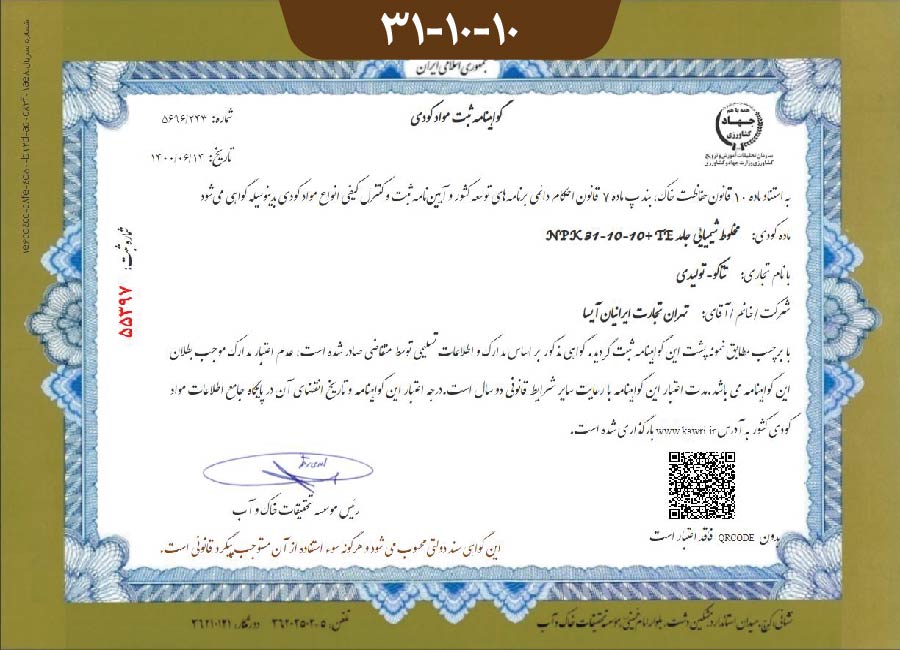 ۳۱-۱۰-۱۰
جمهوری اسلامی ایران
همه با هم
جهاد
کشاورزی
سازمان تحقیقات، آموزش و ترویج
کشاورزی وزارت جهاد کشاورزی
گواهینامه ثبت مواد کودی
شماره: ۵۶۹۶/۲۴۴
تاریخ: ۱۴۰۰/۰۶/۱۴
به استناد ماده ۱۰ قانون حفاظت خاک، بند پ ماده ۷ قانون احکام دائمی برنامه های توسعه کشور و آیین نامه ثبت و کنترل کیفی انواع مواد کودی بدینوسیله گواهی می شود
ماده کودی: مخلوط شیمیایی جامد NPK 31-10-10+TE
با نام تجاری: تتاکو - تولیدی
شرکت / خانم / آقای: تهران تجارت ایرانیان آیسا
با برچسب مطابق نمونه پشت این گواهینامه ثبت گردید. گواهی مذکور بر اساس مدارک و اطلاعات تسلیمی توسط متقاضی صادر شده است، عدم اعتبار مدارک موجب بطلان
این گواهینامه می باشد. مدت اعتبار این گواهینامه با رعایت سایر شرایط قانونی دو سال است. درجه اعتبار این گواهینامه و تاریخ انقضای آن در پایگاه جامع اطلاعات مواد
کودی کشور به آدرس www.kswri.ir بارگذاری شده است.
شماره ثبت:
۵۵۳۹۷
رئیس موسسه تحقیقات خاک و آب
بدون QRCODE فاقد اعتبار است
این گواهی سند دولتی محسوب می شود و هرگونه سوء استفاده از آن مستوجب پیگرد قانونی است.
نشانی: کرج، میدان استاندارد، مشکین دشت، بلوار امام خمینی، موسسه تحقیقات خاک و آب
تلفن: ۵-۳۶۲۰۲۵۰۲ دورنگار: ۳۶۲۱۰۱۲۱